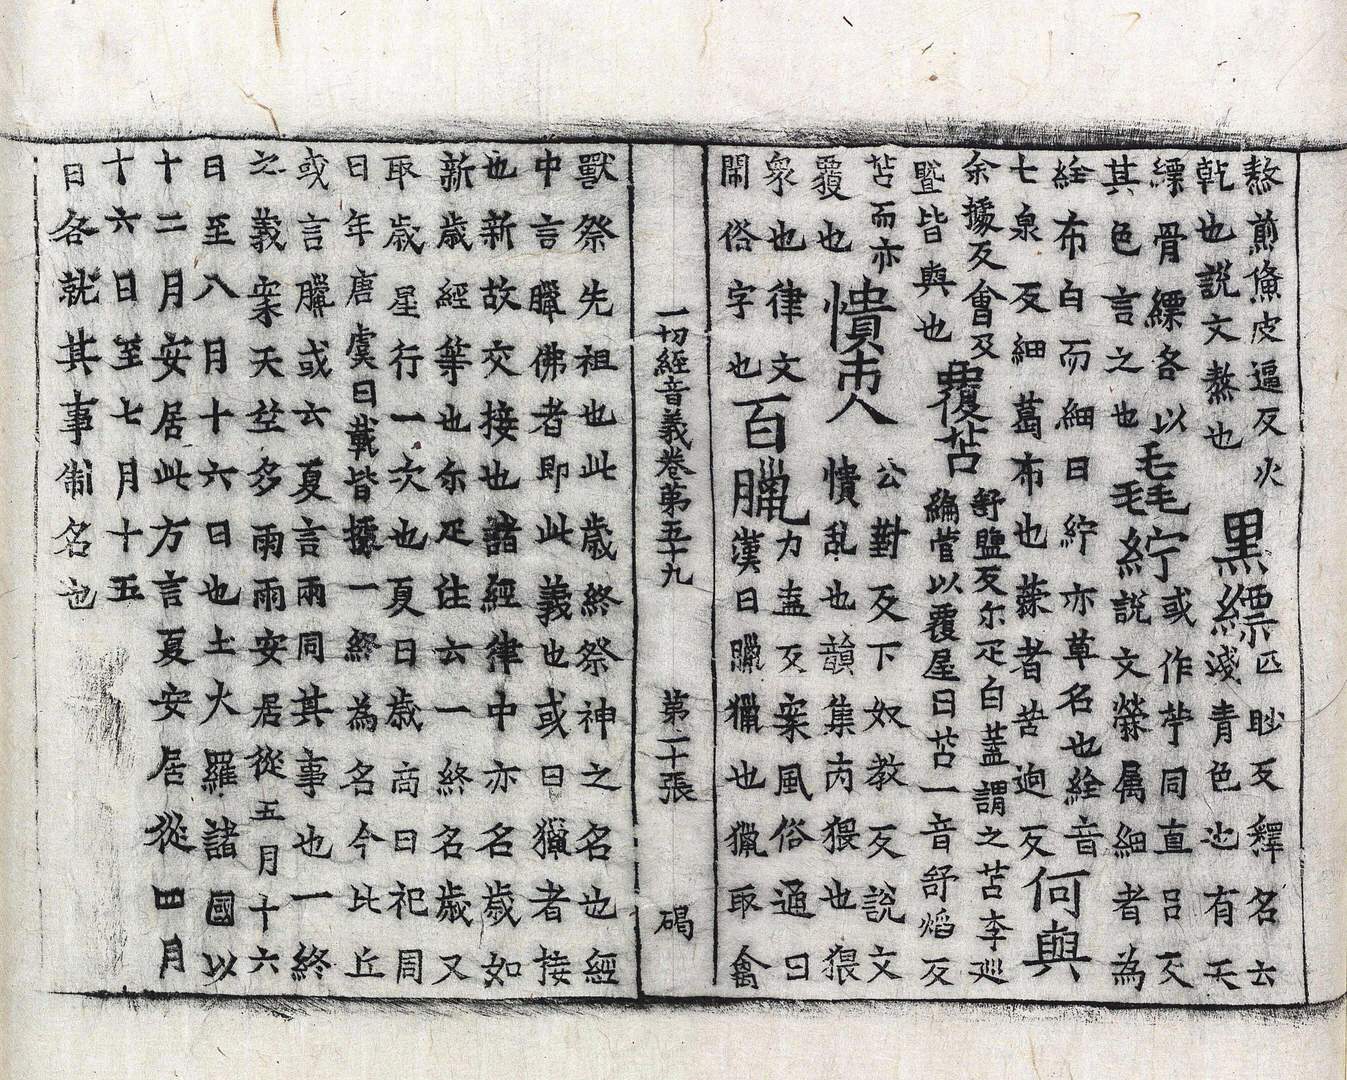 熬煎㷶皮逼反火
乾也說文熬也
黑縹
匹眇反釋名云
淺青色也有天
縹骨縹各以
其色言之也
毳紵
或作苧同直呂反
說文檾属細者為
絟布白而細曰紵亦草名也絟音
七泉反細葛布也檾者苦逈反
何與
余據反會及
曁皆與也
覆苫
舒鹽反尔疋白蓋謂之苫李巡
編菅以覆屋曰苫一音舒焰反
苫而亦
覆也
憒㐲
公對反下如教反說文
憒乱也韻集㐲猥也猥
衆也律文
閙俗字也
百臘
力盍反案風俗通曰
漢曰臘獵也獵取禽
一切經音義卷第五十九 第二十張 碣
獸祭先祖也此歲終祭神之名也經
中言臘佛者即此義也或曰獵者接
也新故交接也諸經律中亦名歲如
新歲經等也尔疋住云一終名歲又
取歲星行一次也夏曰歲商曰祀周
曰年唐虞曰載皆據一終為名今比丘
或言臘或云夏言雨同其事也一終
之義案天竺多雨雨安居從五月十六
日至八月十六日也土火羅諸國以
十二月安居此方言夏安居從四月
十六日至七月十五
日各就其事制名也